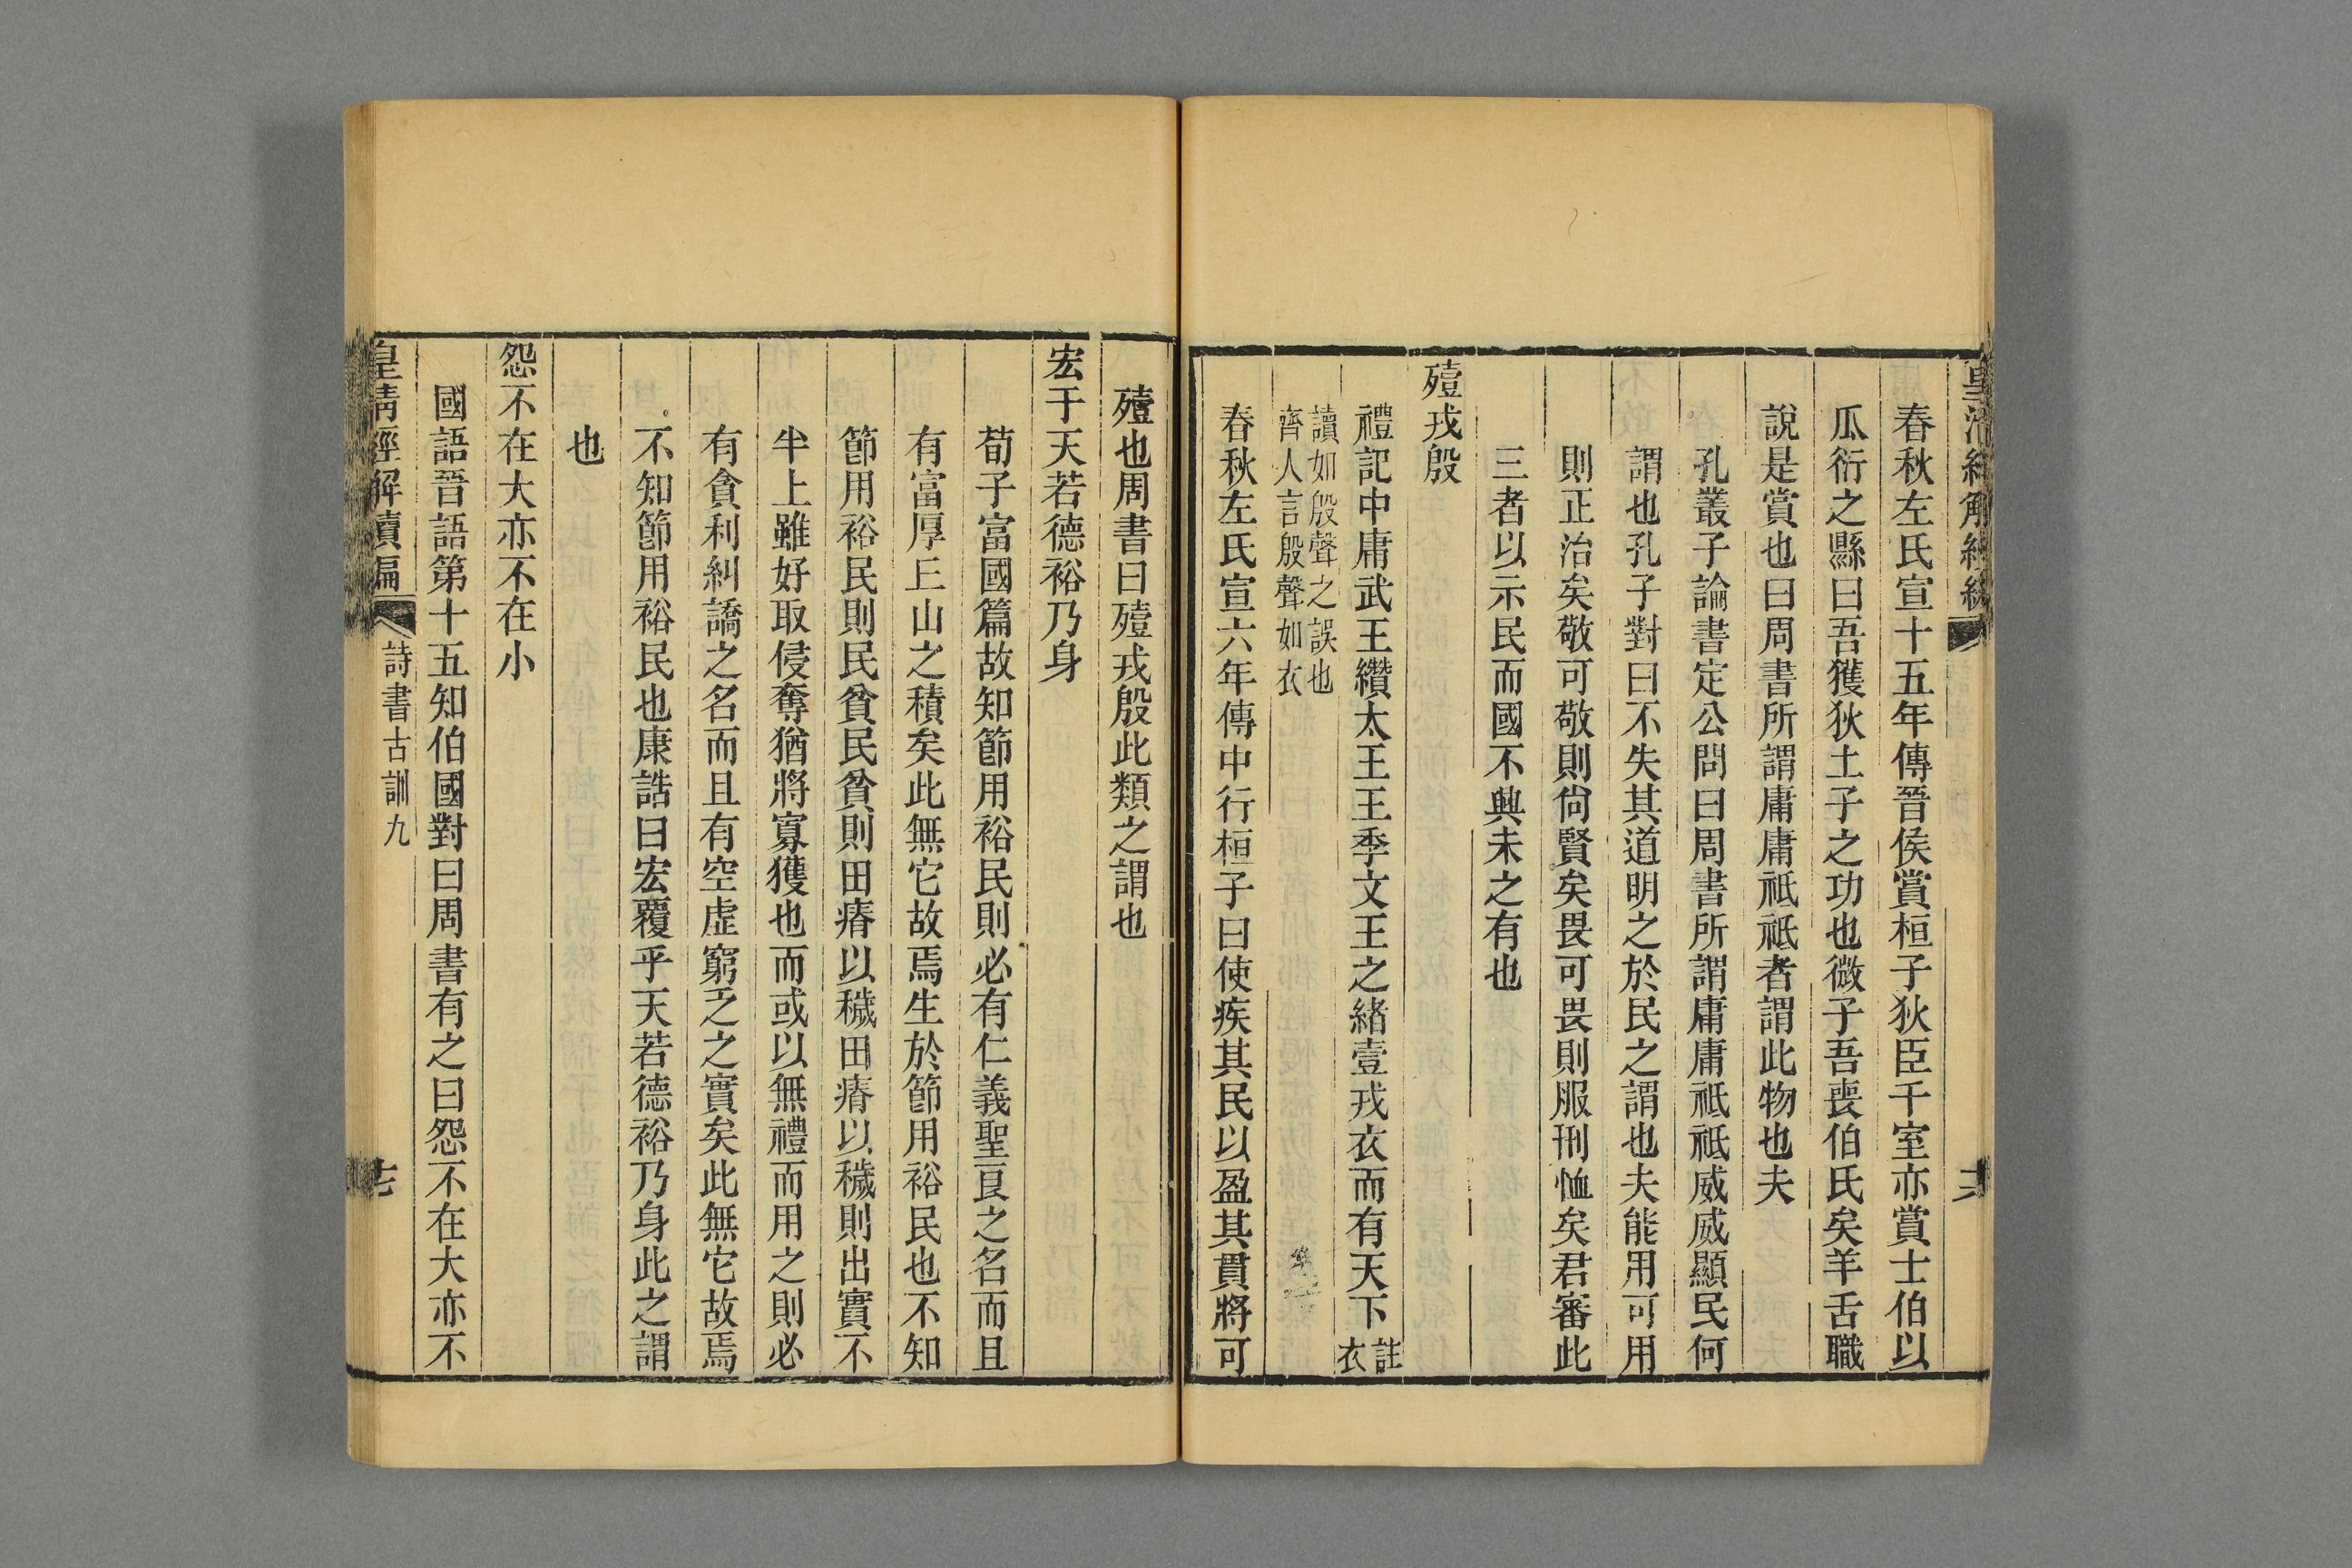 皇清經解續編
六
春秋左氏宣十五年傳晉侯賞桓子狄臣千室亦賞士伯以
瓜衍之縣曰吾獲狄土子之功也微子吾喪伯氏矣羊舌職
說是賞也曰周書所謂庸庸祗祗者謂此物也夫
孔叢子論書定公問曰周書所謂庸庸祗祗威威顯民何
謂也孔子對曰不失其道明之於民之謂也夫能用可用
則正治矣敬可敬則尙賢矣畏可畏則服刑恤矣君審此
三者以示民而國不興未之有也
殪戎殷
禮記中庸武王纘太王王季文王之緒壹戎衣而有天下註衣
讀如殷聲之誤也
齊人言殷聲如衣
春秋左氏宣六年傳中行桓子曰使疾其民以盈其貫將可
殪也周書曰殪戎殷此類之謂也
宏于天若德裕乃身
荀子富國篇故知節用裕民則必有仁義聖良之名而且
有富厚丘山之積矣此無它故焉生於節用裕民也不知
節用裕民則民貧民貧則田瘠以穢田瘠以穢則出實不
半上雖好取侵奪猶將寡獲也而或以無禮而用之則必
有貪利糾譑之名而且有空虛窮乏之實矣此無它故焉
不知節用裕民也康誥曰宏覆乎天若德裕乃身此之謂
也
怨不在大亦不在小
國語晉語第十五知伯國對曰周書有之曰怨不在大亦不
皇清經解續編
詩書古訓九
七